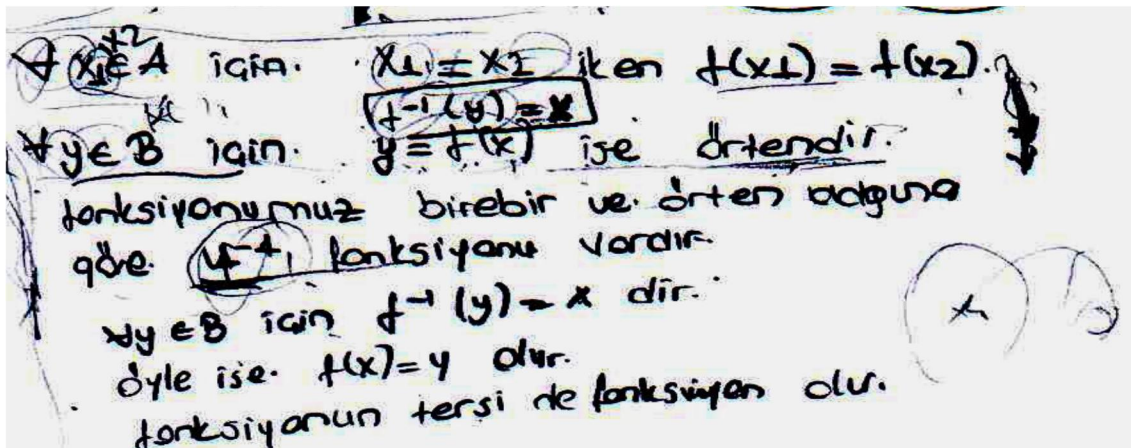 ∀ x1,x2 ∈ A için. x1 = x2 iken f(x1) = f(x2).
f⁻¹(y) = x
∀y ∈ B için. y = f(x) ise örtendir.
fonksiyonumuz birebir ve. örten olduğuna
göre. f⁻¹, fonksiyonu vardır.
∀y ∈ B için f⁻¹(y) = x dir.
öyle ise. f(x) = y olur.
fonksiyonun tersi de fonksiyon olur.